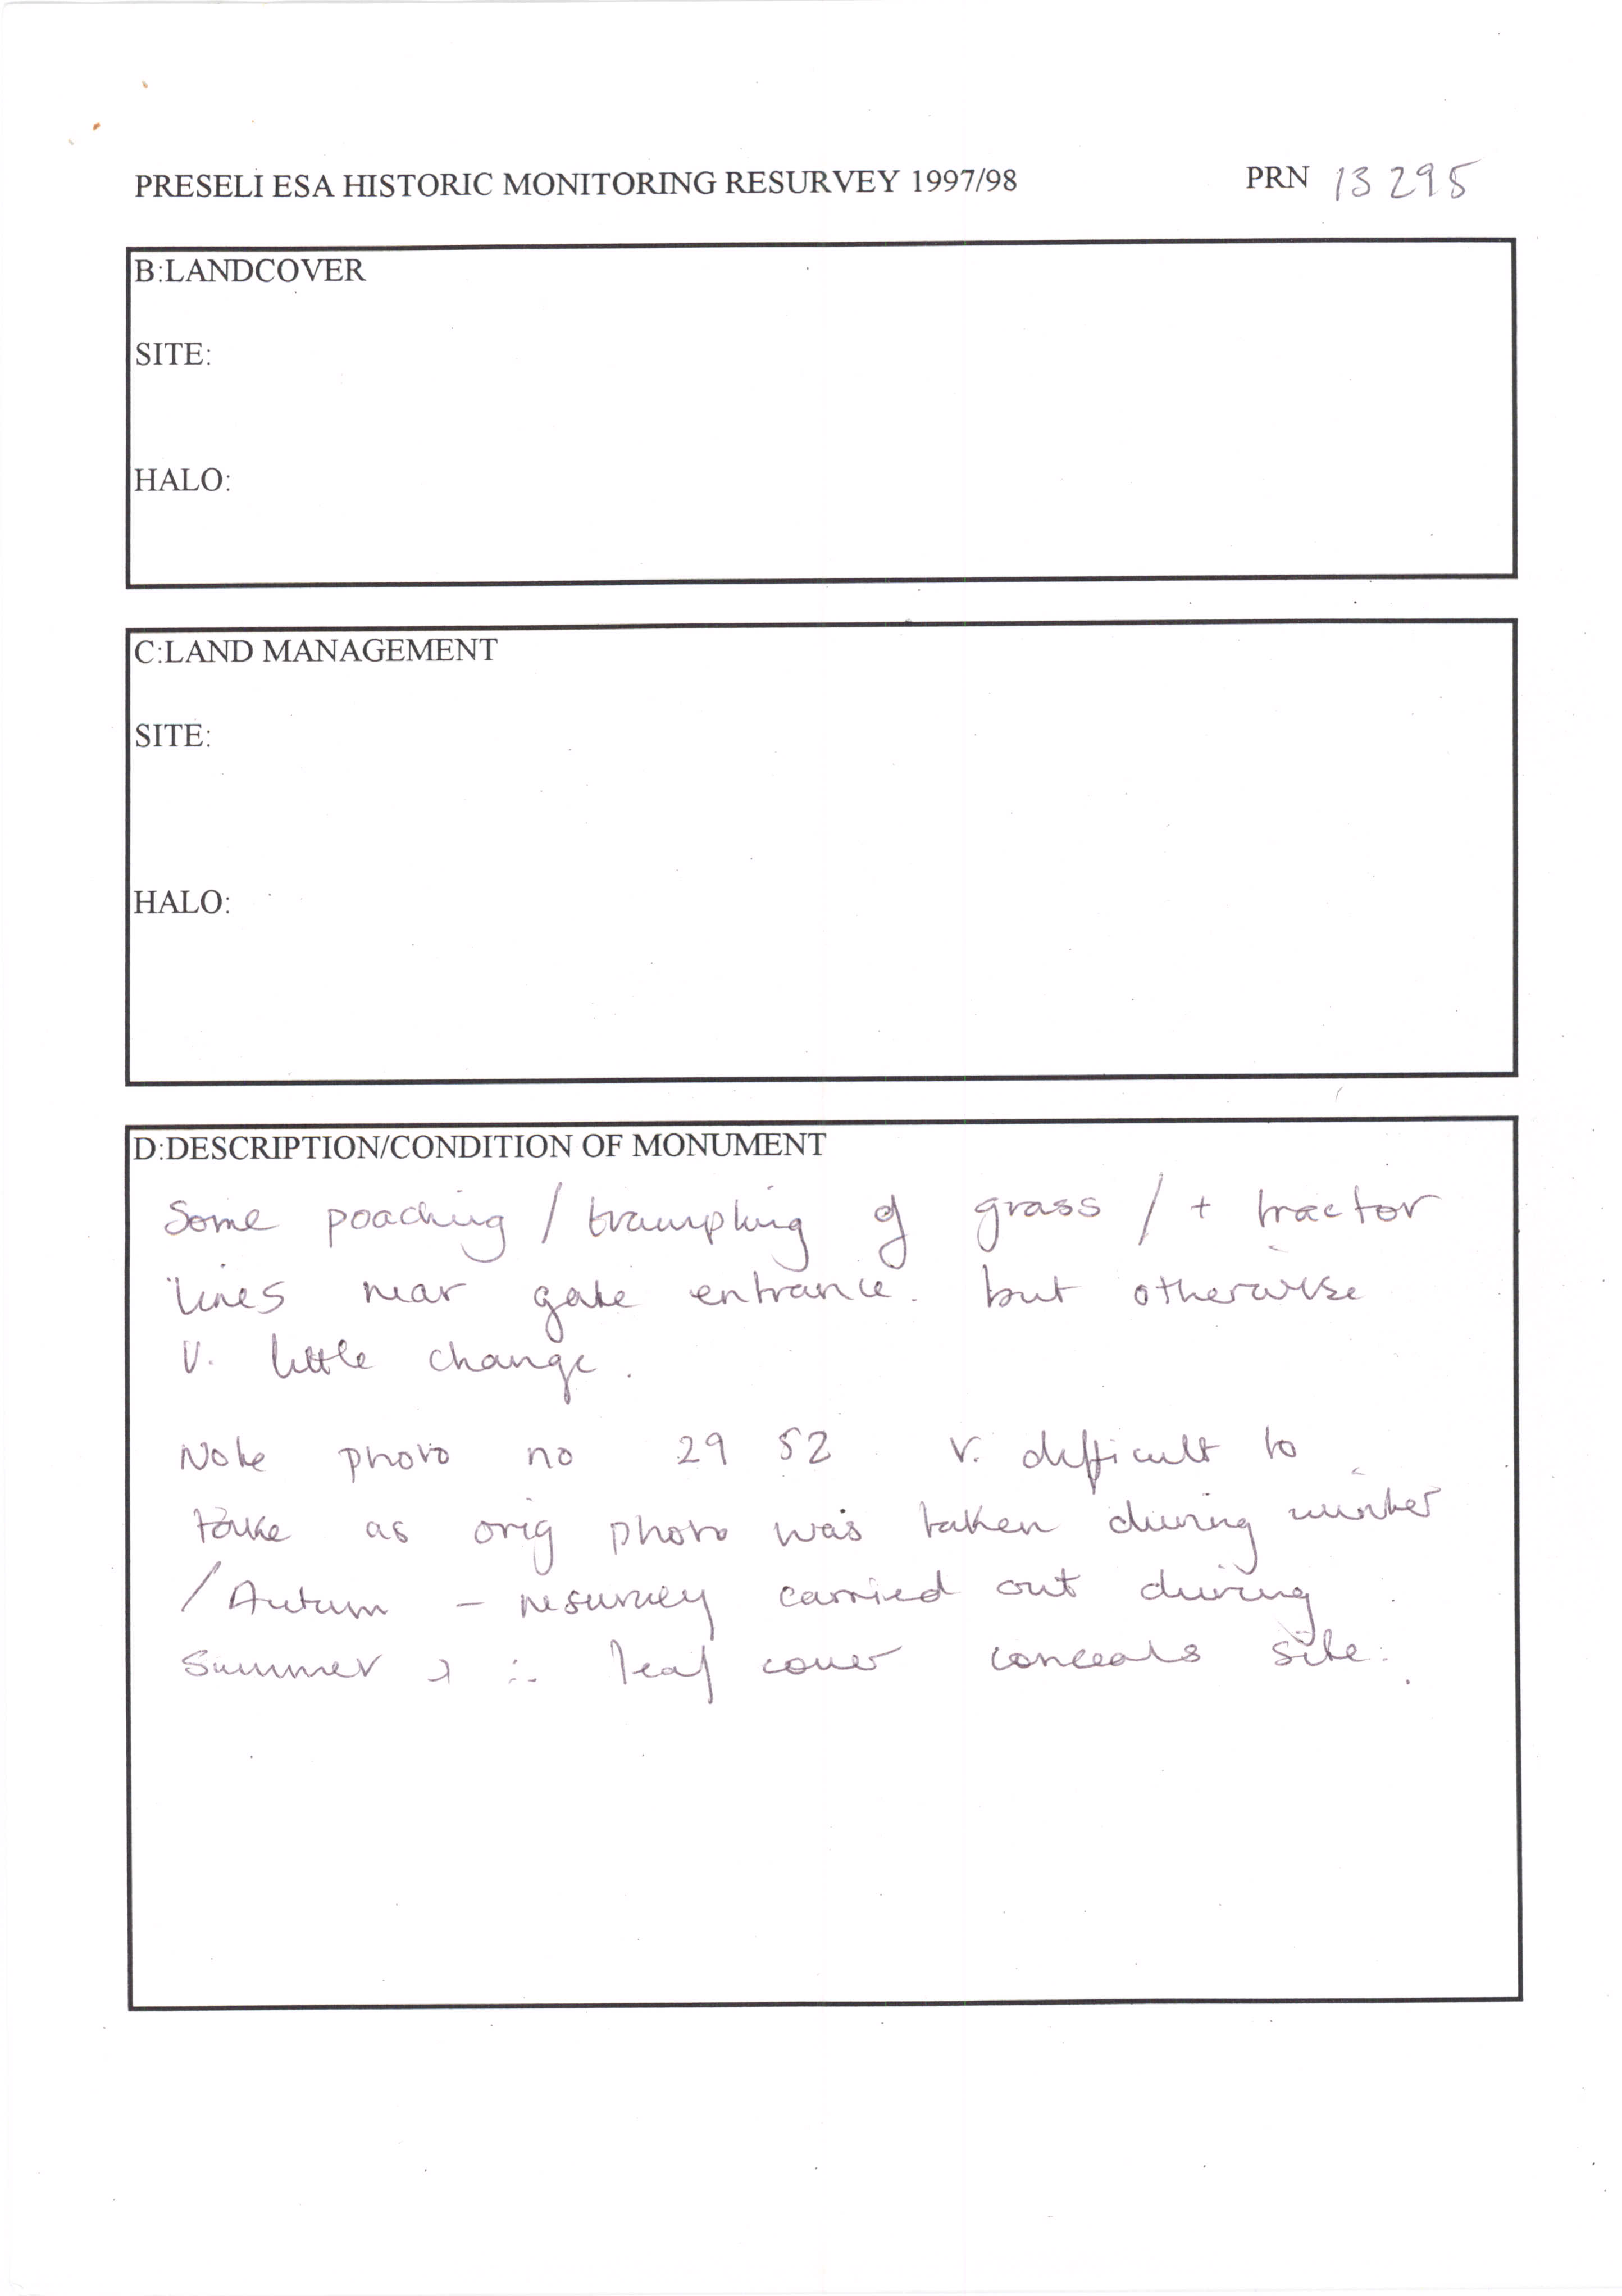 PRESELI ESA HISTORIC MONITORING RESURVEY 1997/98 PRN 13295
B:LANDCOVER
SITE:
HALO:
C:LAND MANAGEMENT
SITE:
HALO:
D:DESCRIPTION/CONDITION OF MONUMENT
Some poaching / trampling of grass / + tractor
lines near gate entrance. but otherwise
V. little change.
Note photo no 29 52 v. difficult to
take as orig photo was taken during winter
/ Autum - resurvey carried out during
Summer ∴ leaf cover conceals site.